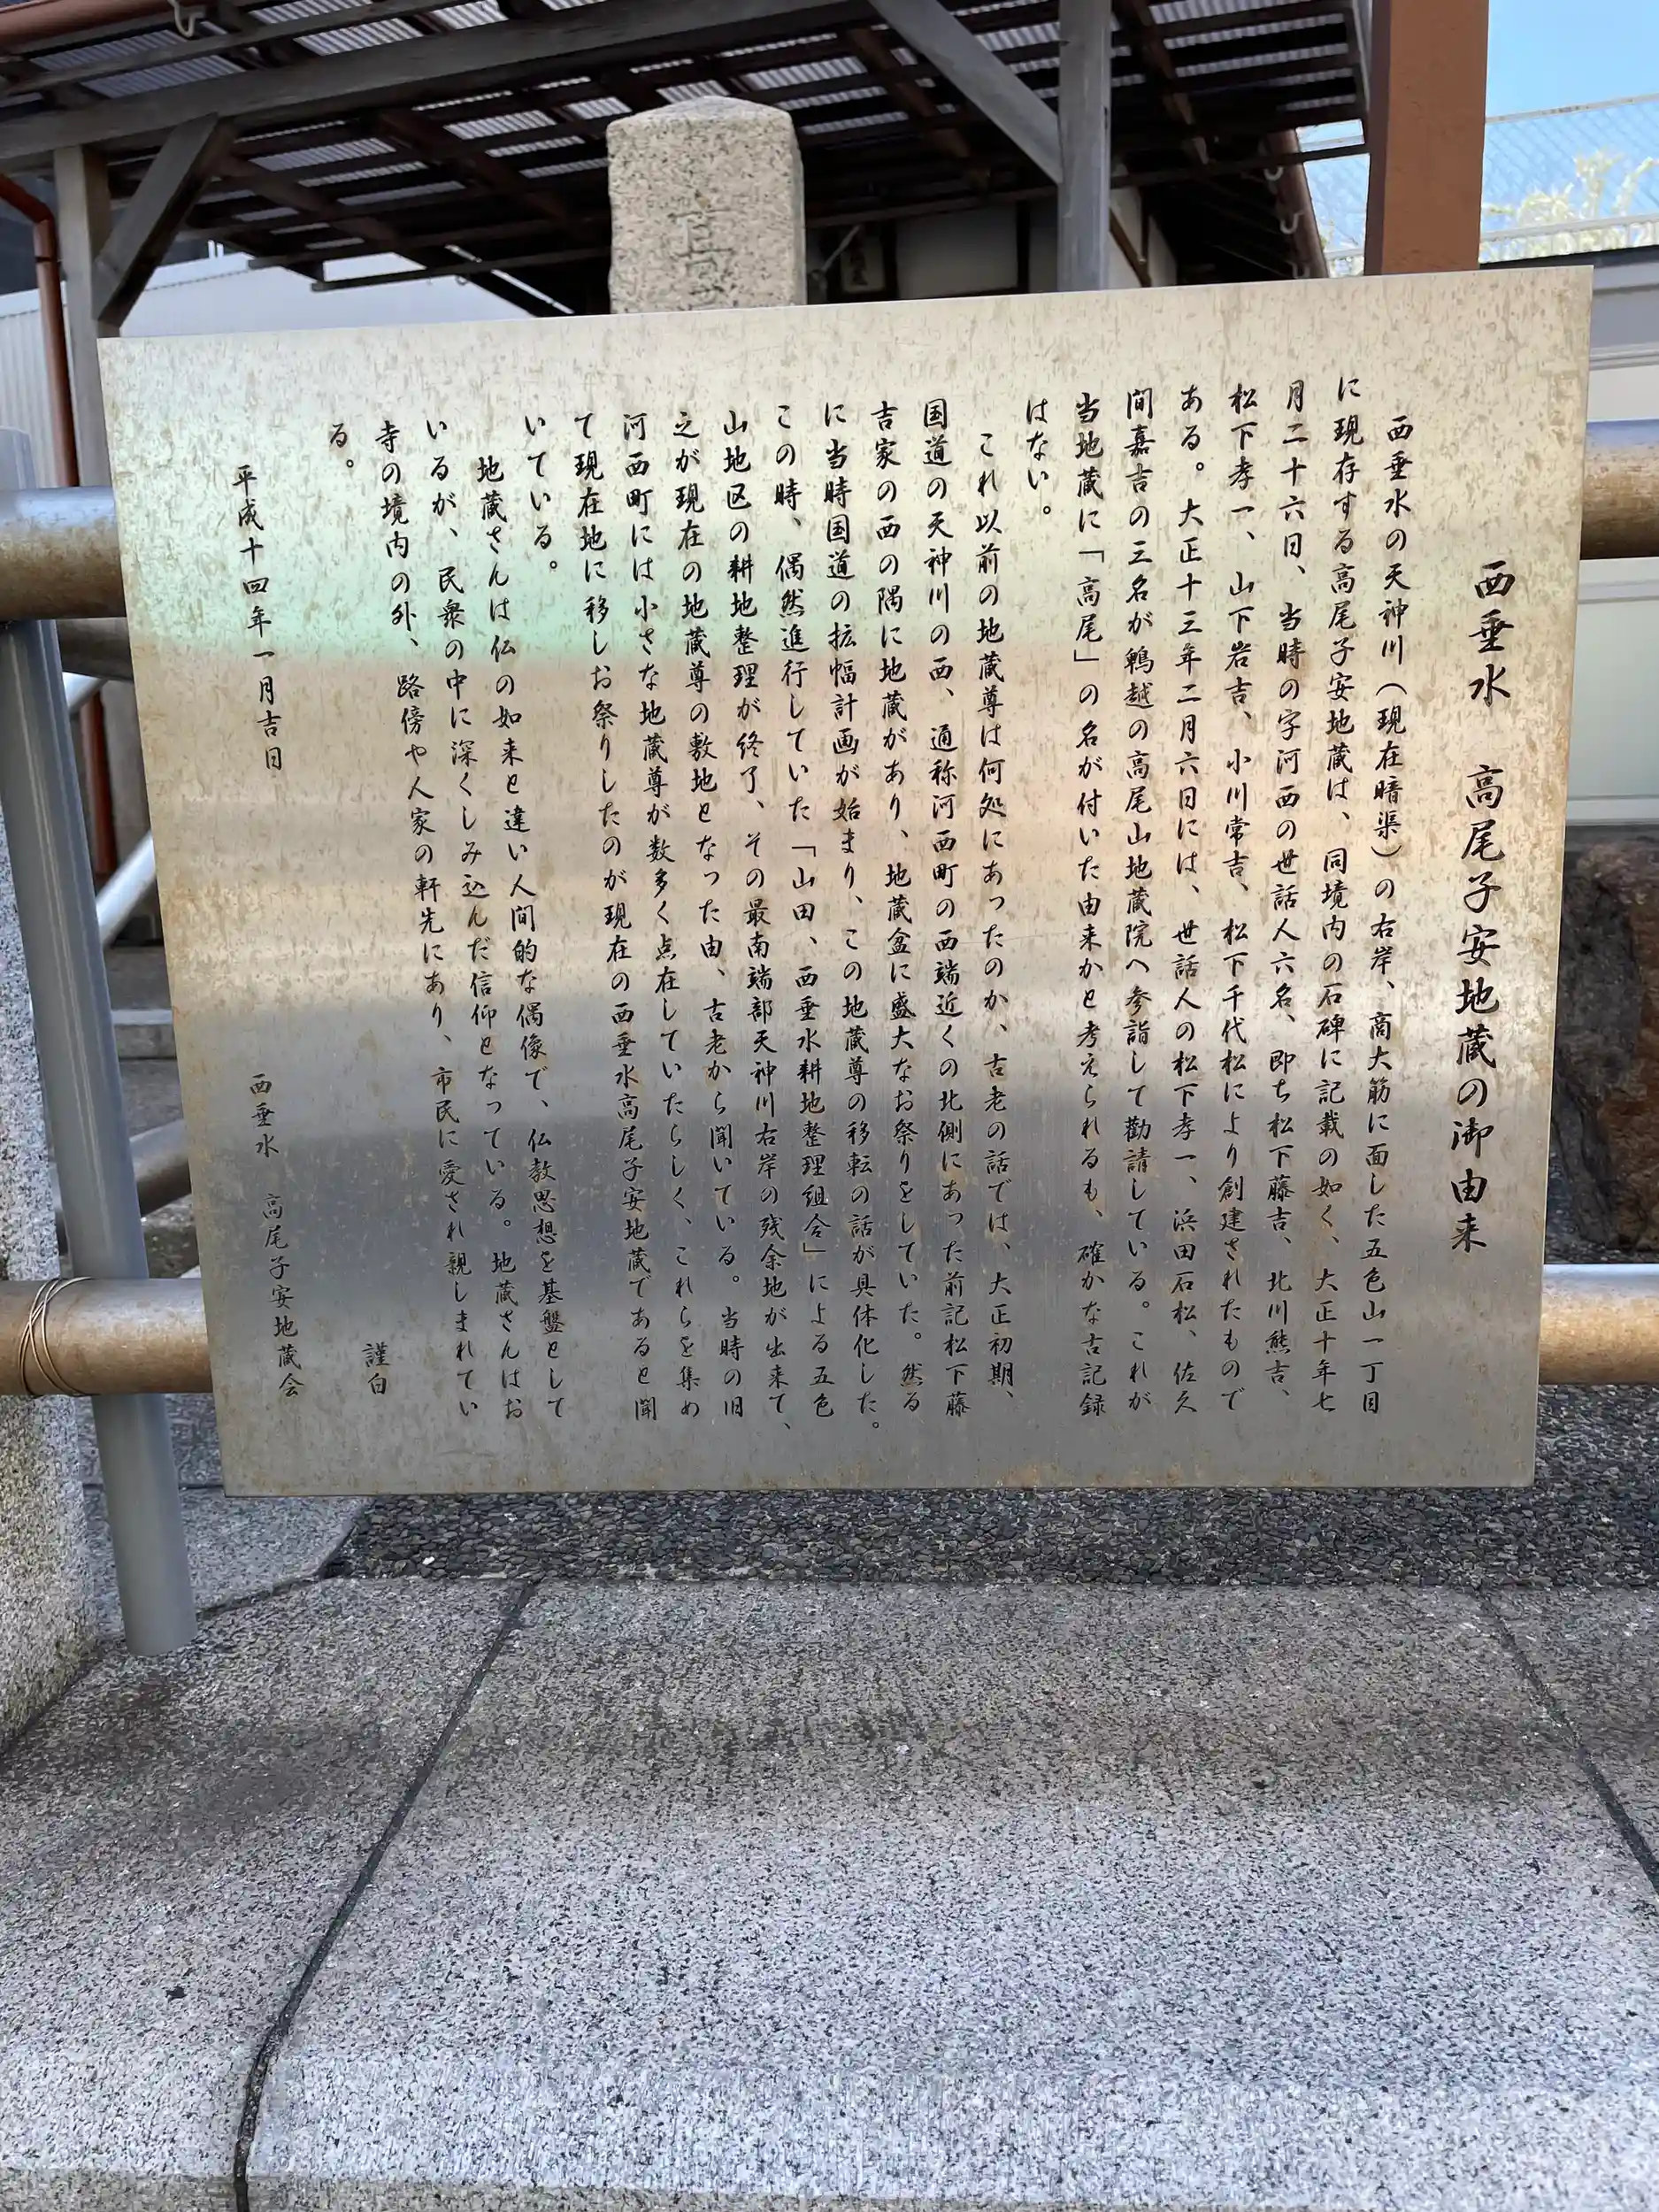 西垂水　高尾子安地蔵の御由来
西垂水の天神川（現在暗渠）の右岸、高大筋に面した五色山一丁目
に現存する高尾子安地蔵は、同境内の石碑に記載の如く、大正十年七
月二十六日、当時の字河西の世話人六名、即ち松下藤吉、北川熊吉、
松下孝一、山下岩吉、小川常吉、松下千代松により創建されたもので
ある。大正十三年二月六日には、世話人の松下孝一、浜田石松、佐久
間嘉吉の三名が鵯越の高尾山地蔵院へ参詣して勸請している。これが
当地蔵に「高尾」の名が付いた由来かと考えられるも、確かな古記録
はない。
これ以前の地蔵尊は何処にあったのか、古老の話では、大正初期、
国道の天神川の西、通称河西町の西端近くの北側にあった前記松下藤
吉家の西の隅に地蔵があり、地蔵盆に盛大なお祭りをしていた。然る
に当時国道の拡幅計画が始まり、この地蔵尊の移転の話が具体化した。
この時、偶然進行していた「山田、西垂水耕地整理組合」による五色
山地区の耕地整理が終了、その最南端部天神川右岸の残余地が出来て、
之が現在の地蔵尊の敷地となった由、古老から聞いている。当時の旧
河西町には小さな地蔵尊が数多く点在していたらしく、これらを集め
て現在地に移しお祭りしたのが現在の西垂水高尾子安地蔵であると聞
いている。
地蔵さんは仏の如来と違い人間的な偶像で、仏教思想を基盤として
いるが、民衆の中に深くしみ込んだ信仰となっている。地蔵さんはお
寺の境内の外、路傍や人家の軒先にあり、市民に愛され親しまれてい
る。
謹白
平成十四年一月吉日
西垂水　高尾子安地蔵会